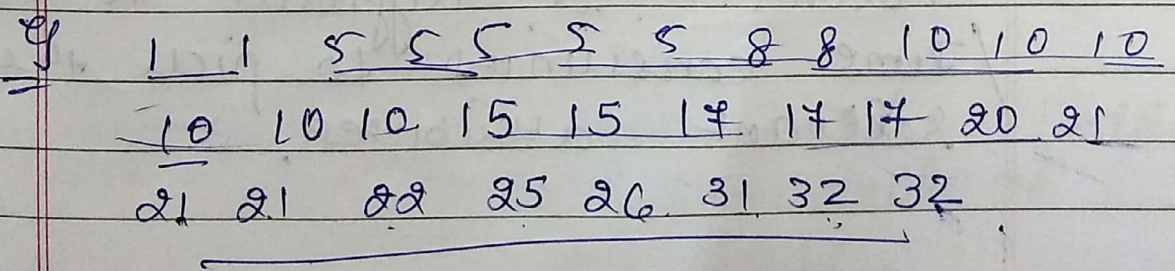 eg 1 1 5 5 5 5 5 8 8 10 10 10
10 10 10 15 15 17 17 17 20 21
21 21 22 25 26 31 32 32